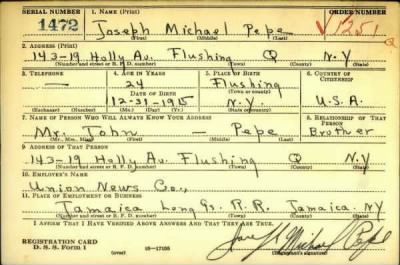 SERIAL NUMBER 1. NAME (Print) ORDER NUMBER
1472 Joseph Michael Pepe V1251
(First) (Middle) (Last)
2. ADDRESS (Print)
143-19 Holly Av. Flushing Q N.Y
(Number and street or R. F. D. number) (Town) (County) (State)
3. TELEPHONE 4. AGE IN YEARS 5. PLACE OF BIRTH 6. COUNTRY OF CITIZENSHIP
— 24 Flushing
DATE OF BIRTH (Town or county)
12-31-1915 N.Y. U.S.A.
(Exchange) (Number) (Mo.) (Day) (Yr.) (State or country)
7. NAME OF PERSON WHO WILL ALWAYS KNOW YOUR ADDRESS 8. RELATIONSHIP OF THAT PERSON
Mr. John — Pepe Brother
(Mr., Mrs., Miss) (First) (Middle) (Last)
9. ADDRESS OF THAT PERSON
143-19 Holly Av. Flushing Q N.Y
(Number and street or R. F. D. number) (Town) (County) (State)
10. EMPLOYER'S NAME
Union News Co.,
11. PLACE OF EMPLOYMENT OR BUSINESS
Jamaica Long Is. R.R. Jamaica NY
(Number and street or R. F. D. number) (Town) (County) (State)
I AFFIRM THAT I HAVE VERIFIED ABOVE ANSWERS AND THAT THEY ARE TRUE.
REGISTRATION CARD
D. S. S. Form 1 (over) 16-17105 Joseph Michael Pepe
(Registrant's signature)